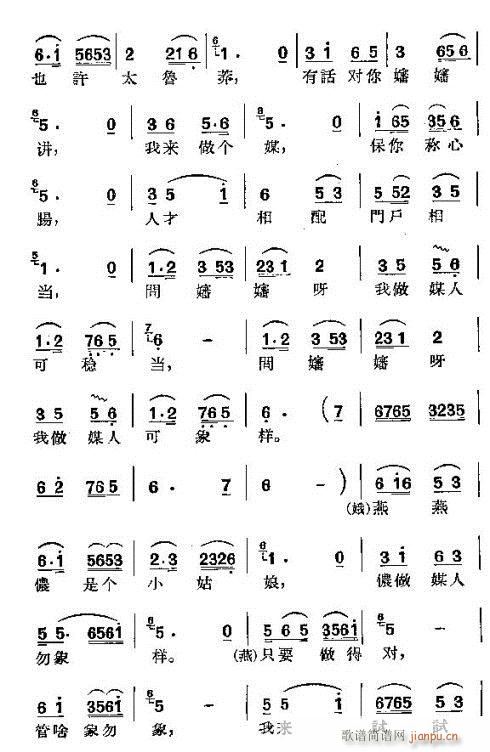 6·i 5653 2 216 6 1· 0 3 i 6 5 3 656
也許太魯莽，有話对你嬸嬸
6 5· 0 3 6 5·6 6 5· 0 i 65 35 6
讲，我来做个媒，保你称心
6 5· 0 3 5 i 6 5 3 5 52 3 5
腸，人才相配門戶相
5 1· 0 1·2 3 53 23 1 2 3 5 5 6
当，問嬸嬸呀我做媒人
1·2 765 7 6 - 1·2 3 53 23 1 2
可稳当，問嬸嬸呀
3 5 5 6 1·2 765 6· (7 6765 3235
我做媒人可象样。
6 2 765 6· 7 6 - ) 6 i6 5 3
(娥)燕燕
6·i 5653 2·3 2326 6 1· 0 3 i 6 5 3
儂是个小姑娘，儂做媒人
5 5· 656i 6 5· 0 5 6 5 356i 6 5 -
勿象样。(燕)只要做得对，
6 i 356i 6 5· 0 3 i 6765 5 3
管啥象勿象，我来試試
歌谱简谱网
jianpu.cn